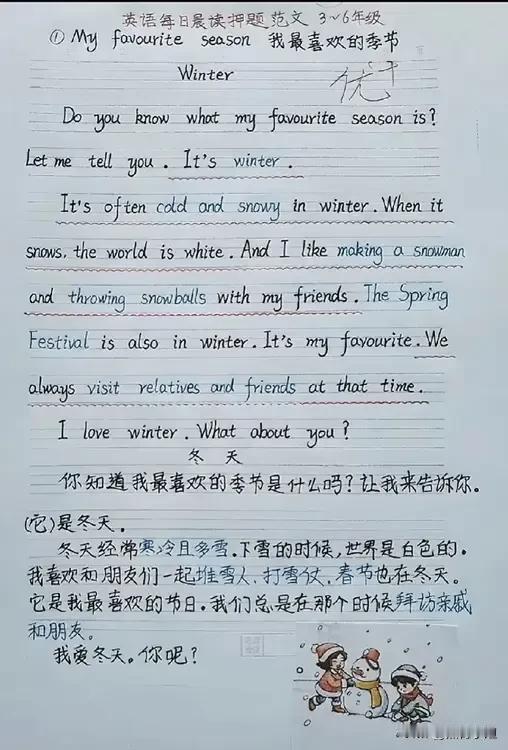 英语每日晨读押题范文 3~6年级
① My favourite season 我最喜欢的季节
Winter
优+
Do you know what my favourite season is?
Let me tell you. It's winter.
It's often cold and snowy in winter. When it
snows, the world is white. And I like making a snowman
and throwing snowballs with my friends. The Spring
Festival is also in winter. It's my favourite. We
always visit relatives and friends at that time.
I love winter. What about you?
冬天
你知道我最喜欢的季节是什么吗?让我来告诉你。
(它)是冬天.
冬天经常寒冷且多雪.下雪的时候,世界是白色的.
我喜欢和朋友们一起堆雪人、打雪仗.春节也在冬天。
它是我最喜欢的节日.我们总是在那个时候拜访亲戚
和朋友。
我爱冬天。你呢?